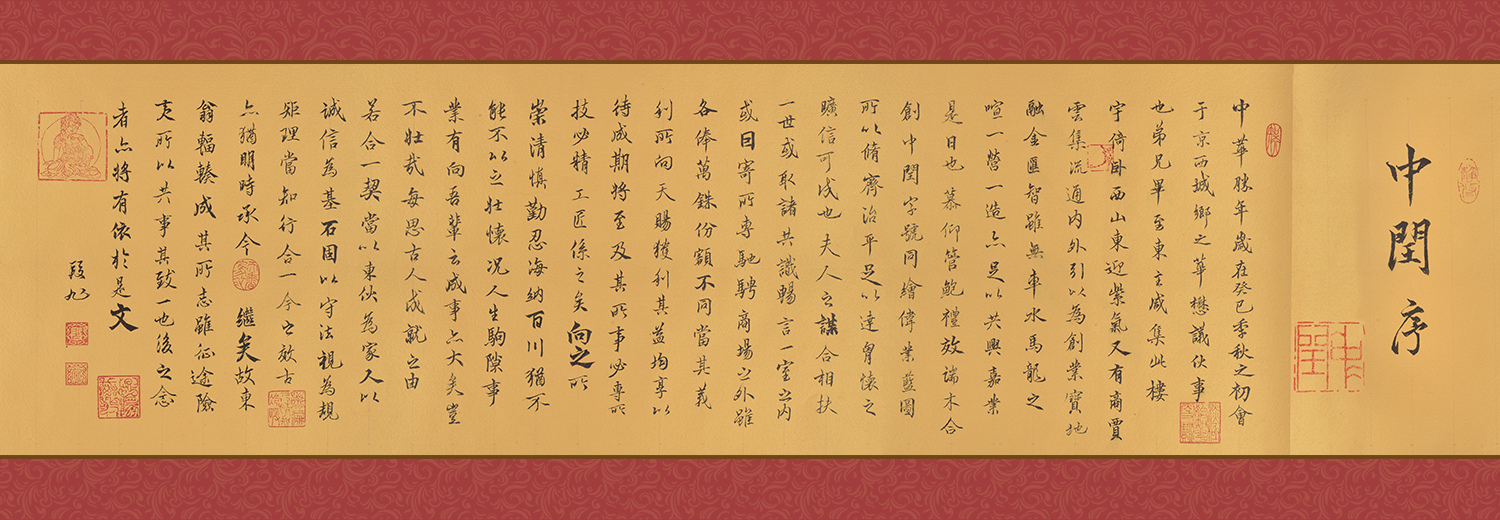 中閏序
中華勝年歲在癸巳季秋之初會
于京西城鄉之華懋議伙事
也弟兄畢至東主咸集此樓
宇倚毋西山東迎紫氣又有商賈
雲集流通內外引以為創業寶地
融金匯智雖無車水馬龍之
喧一營一造亦足以共興嘉業
是日也慕仰管鮑禮效端木合
創中閏字號同繪偉業藍圖
所以脩齊治平足以達胷懷之
曠信可成也夫人之謀合相扶
一世或取諸共識暢言一室之內
或曰寄所專馳騁商場之外雖
各俸萬銖份額不同當其義
利所向天賜獲利其益均享以
待成期將至及其所事必專所
技必精工匠係之矣向之所
崇清慎勤忍海納百川猶不
能不以之壯懷況人生駒隙事
業有向吾輩云成事亦大矣豈
不壯哉每思古人成就之由
若合一契當以東伙為家人以
誠信為基石固以守法視為規
矩理當知行合一今之效古
亦猶明時承今繼矣故東
翁輻輳成其所志雖征途險
夷所以共事其致一也後之念
者亦將有依於是文
段旭